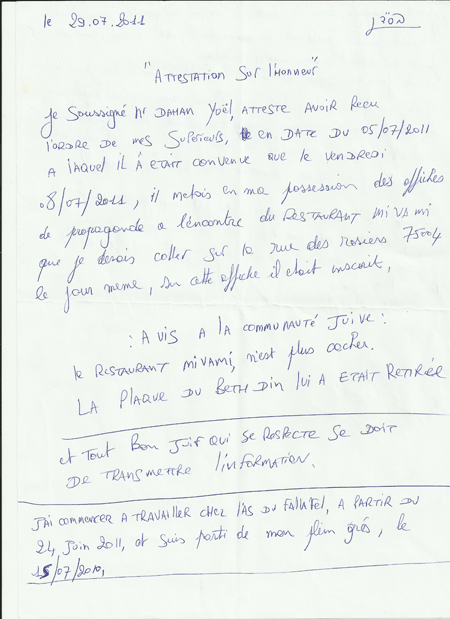 le 29.07.2011
"ATTESTATION SUR l'HONNEUR"
Je Soussigné Mr DAHAN Yoël, ATTESTE AVOIR RECU
l'ORDRE DE MES SUPÉRIEURS, EN DATE DU 05/07/2011
A lAQUEL IL À ETAIT CONVENUE QUE LE VENDREDI
08/07/2011, il metais en ma possession des affiches
de propagande a l'encontre du RESTAURANT MIVAMI
que je devais coller sur la rue des rosiers 75004
le jour meme, sur cette affiche il etait inscrit,
: AVIS A LA COMMUNAUTÉ JUIVE :
le RESTAURANT MIVAMI, n'est plus cacher.
LA PLAQUE DU BETH DIN lUI A ETAIT RETIRÉE
et TOUT BON JUIF QUI SE RESPECTE SE DOIT
DE TRANSMETTRE l'INFORMATION.
J'AI COMMENCER A TRAVAILLER CHEZ l'AS DU FALLAFEL, A PARTIR DU
24 Juin 2011, et suis parti de mon plein grés, le
15/07/2010,